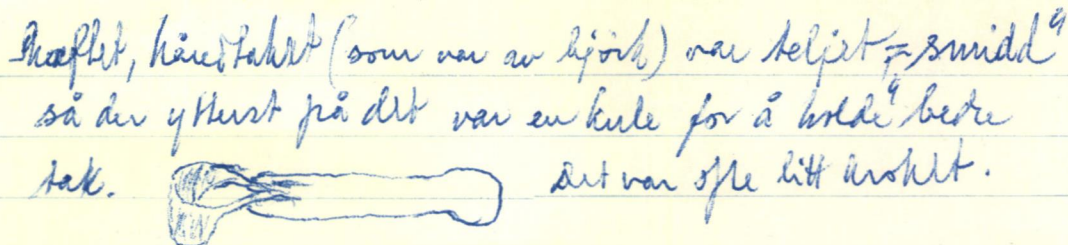 Skaftet, håndtaket (som var av björk) var teljet = „smidd"
så der ytterst på det var en kule for å holde bedre
tak. Det var ofte litt krokket.